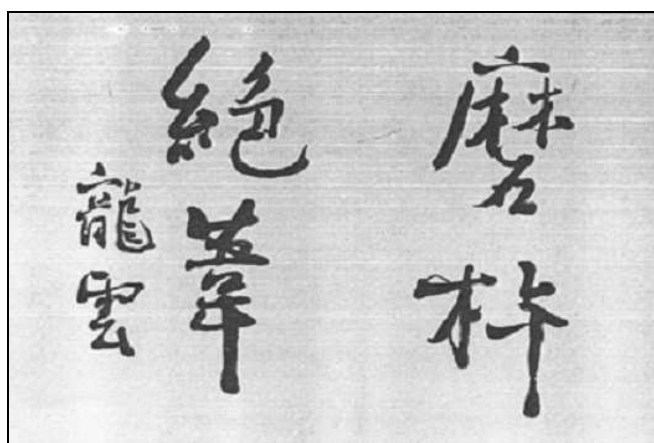 磨杵
絕韋
龍雲